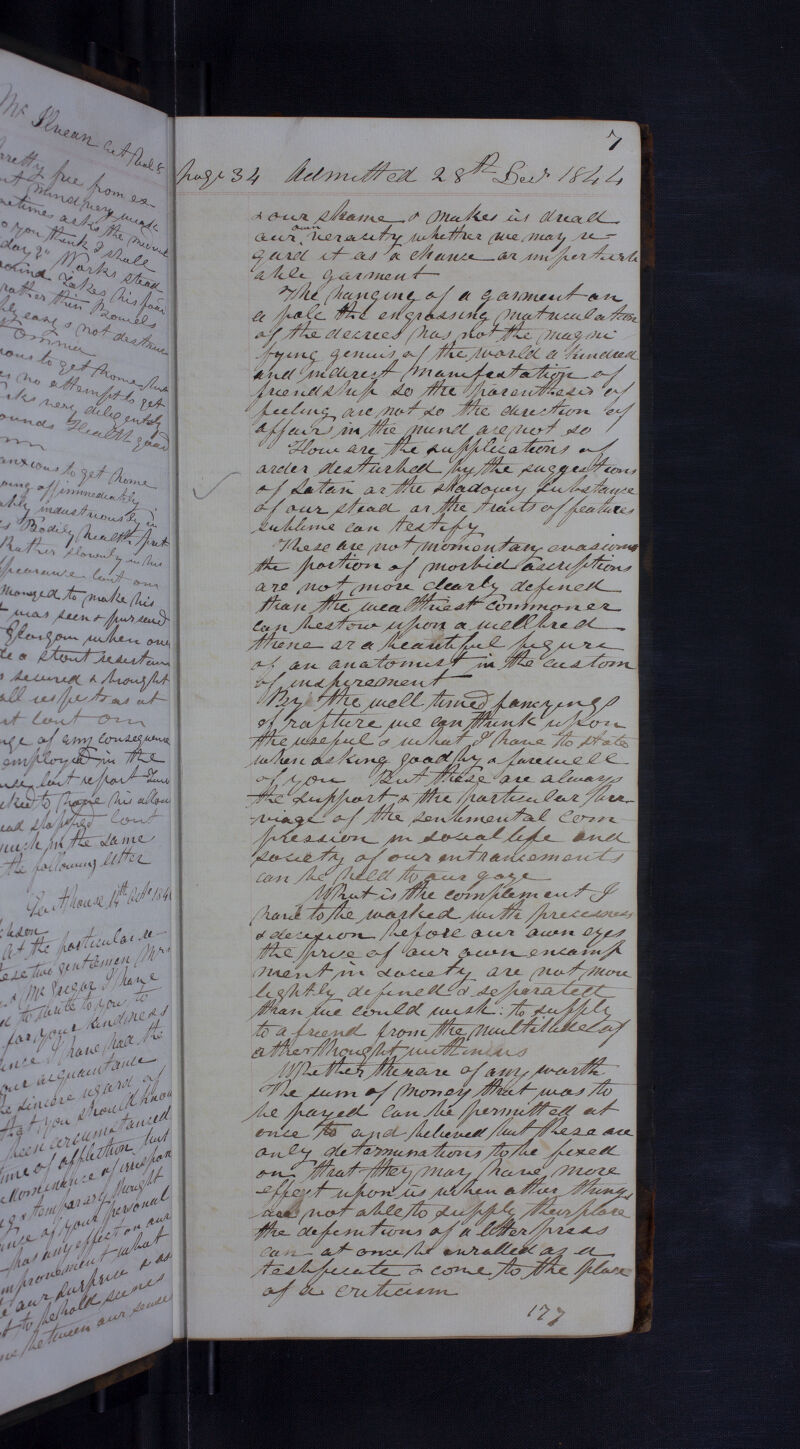 Mr
pretty free from ex
mind very weak
sometimes asks the
do you think I shall
day?" Works stead
Takes his food
rather thin Bowels
easy & not destruc

to get home but
no attempt to get
very diligently
Health good

anxious to get home
going off immediately
industriously in
Bodily health but
Rather slovenly in his
appearance but on
managed to make his
was seen & pursued
Glasgow when one
a stout resistance
secured & brought
all respects as at
but on
of any consequence
employed in the
last report
to have his allow
stopped but
much in the same
the following letter
14th Octr 184
At the particular re
these two gentlemen Mrs
& McGregor I have
to write to you to
for your kindness
since I have had the
your acquaintance
sincere regard of
that you should know
been circumstanced
time of affliction but
predominance of
& temporary thought
sense of your personal
has any effect on our
improvement what
our surprise & as
to behold scenes
between our sense
7
page 34 Admitted 28th Decr 1844
& our shame & makes us dread
our own veracity whether we may re-
gard it as a chance or imperturb
able garment
The hanging of a garment on
a pole the engrossing matriculation
of the decrees has not the magni
fying genius of the world a hundred
and inderest manifestation of
friendship so the parenthesis of
feeling are not so the direction of
affairs in the mind are not so
How are the supplications of
order disturbed by the suggestions
of Satan or the shadowy substance
of our stead or the traits of features
sublime can testify
These are not momentary evasions
the portion of morbid ascriptions
are not more clearly defined
than the wealthiest commoner
can bestow upon a well bred
theme or a beautiful figure
of an anatomist in the custom
of inspirement
By the well timed fancying
of rapture we can think upon
the useful & what I have to state
when asking good by a farewell
of you But these are always
the support & the particular
of the sentimental com-
pression in social life and
society of our entrancements
can be held to our gaze
What is the complement I
have to be worked with preciseness
& decision before our own eyes
the price of our own encamp
ment in society are not more
lightly defined & separated
than we could wish: to supply
to a friend from the multitude of
other thought within us
Whether there are of any worth
The sum of money that was to
be payed can be permitted at
once to and believed but these are
only determinations to be fixed
on that they may have more
effect upon us when other things
are not able to supply their place
the definitions of a letter press
can at once be enrolled as a
testificate & come to the place
of a criticism
177